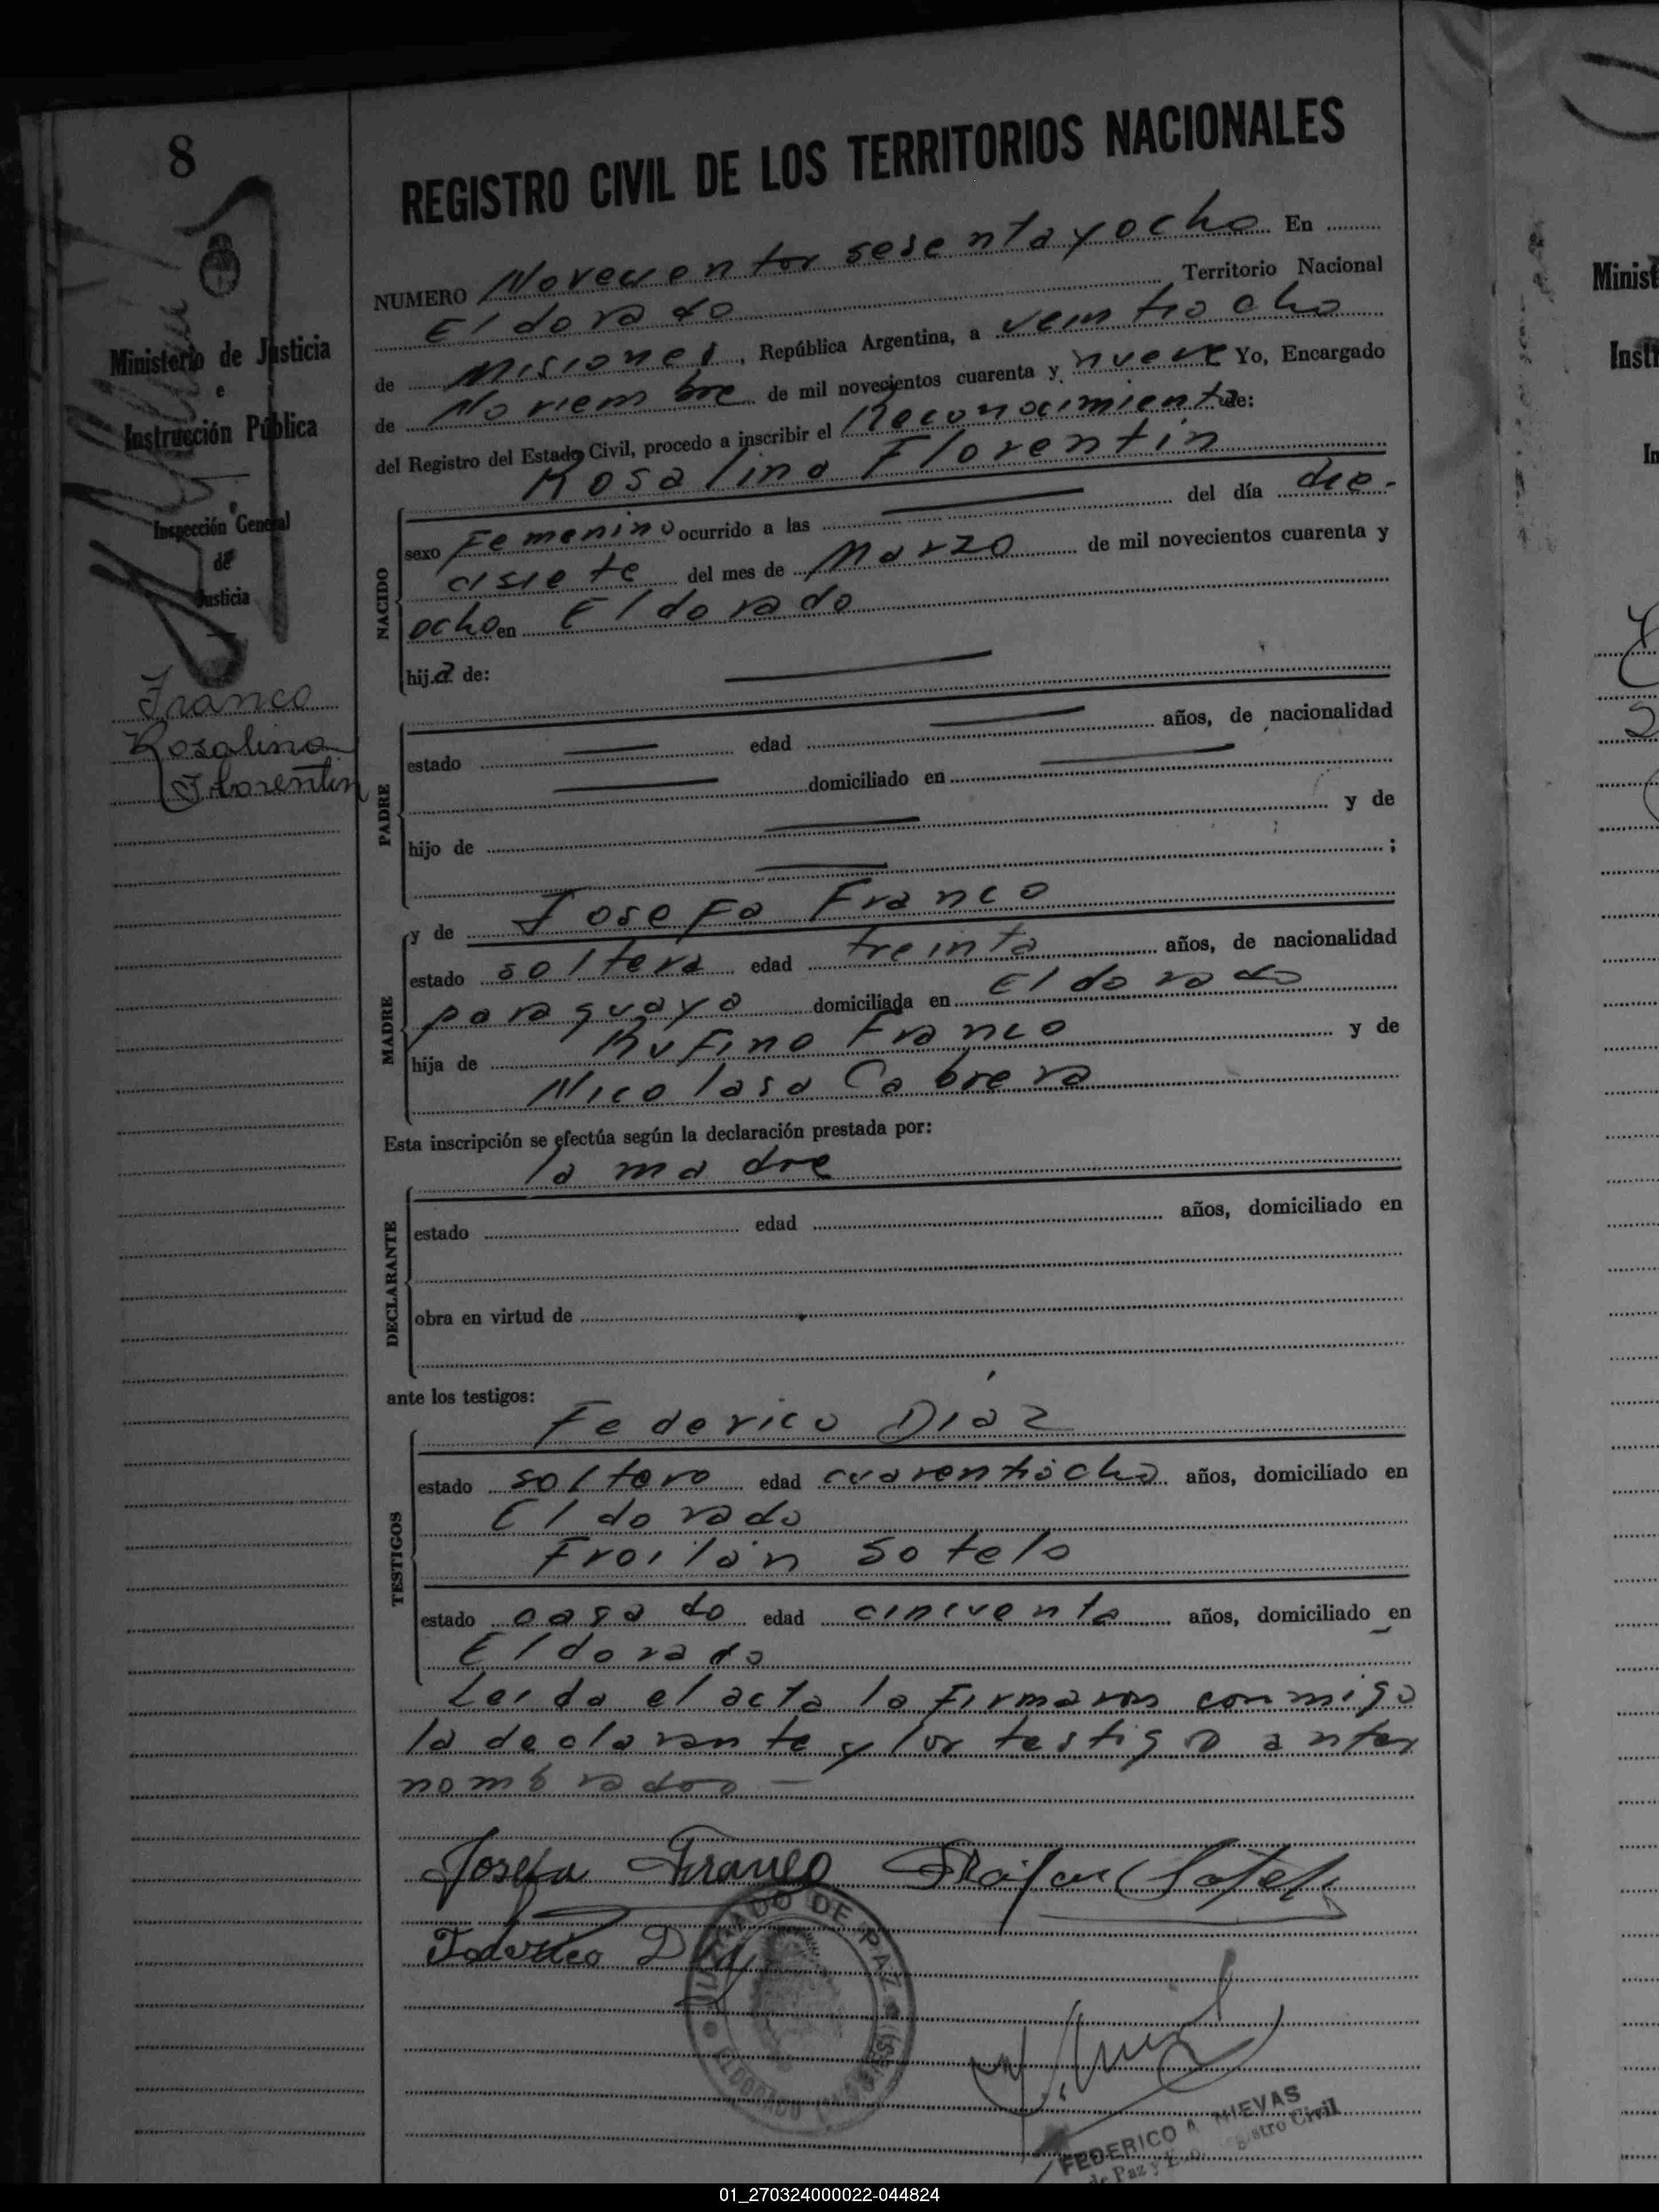 8
Ministerio de Justicia
e
Instrucción Pública
Inspección General
de
Justicia
Franco
Rosalina
Florentin
REGISTRO CIVIL DE LOS TERRITORIOS NACIONALES
NUMERO Novecientos sesentayocho En
Eldorado Territorio Nacional
de Misiones, República Argentina, a veintiocho
de Noviembre de mil novecientos cuarenta y nueve Yo, Encargado
del Registro del Estado Civil, procedo a inscribir el Reconocimiento de:
Rosalina Florentin
NACIDO
sexo Femenino ocurrido a las del día die-
cisiete del mes de Marzo de mil novecientos cuarenta y
ocho en Eldorado
hija de:
PADRE
estado edad años, de nacionalidad
domiciliado en
hijo de y de
;
MADRE
y de Josefa Franco
estado soltera edad treinta años, de nacionalidad
paraguaya domiciliada en Eldorado
hija de Rufino Franco y de
Nicolasa Cabrera
Esta inscripción se efectúa según la declaración prestada por:
la madre
DECLARANTE
estado edad años, domiciliado en
obra en virtud de
ante los testigos:
Federico Diaz
TESTIGOS
estado soltero edad cuarentiocho años, domiciliado en
Eldorado
Froilán Sotelo
estado casado edad cincuenta años, domiciliado en
Eldorado
Leida el acta la firmaron conmigo
la declarante y los testigo antes
nombrados —
Josefa Franco
Federico
JUZGADO DE PAZ
FEDERICO A NIEVAS
de Paz y Civil
Minist
Insti
In
01_270324000022-044824